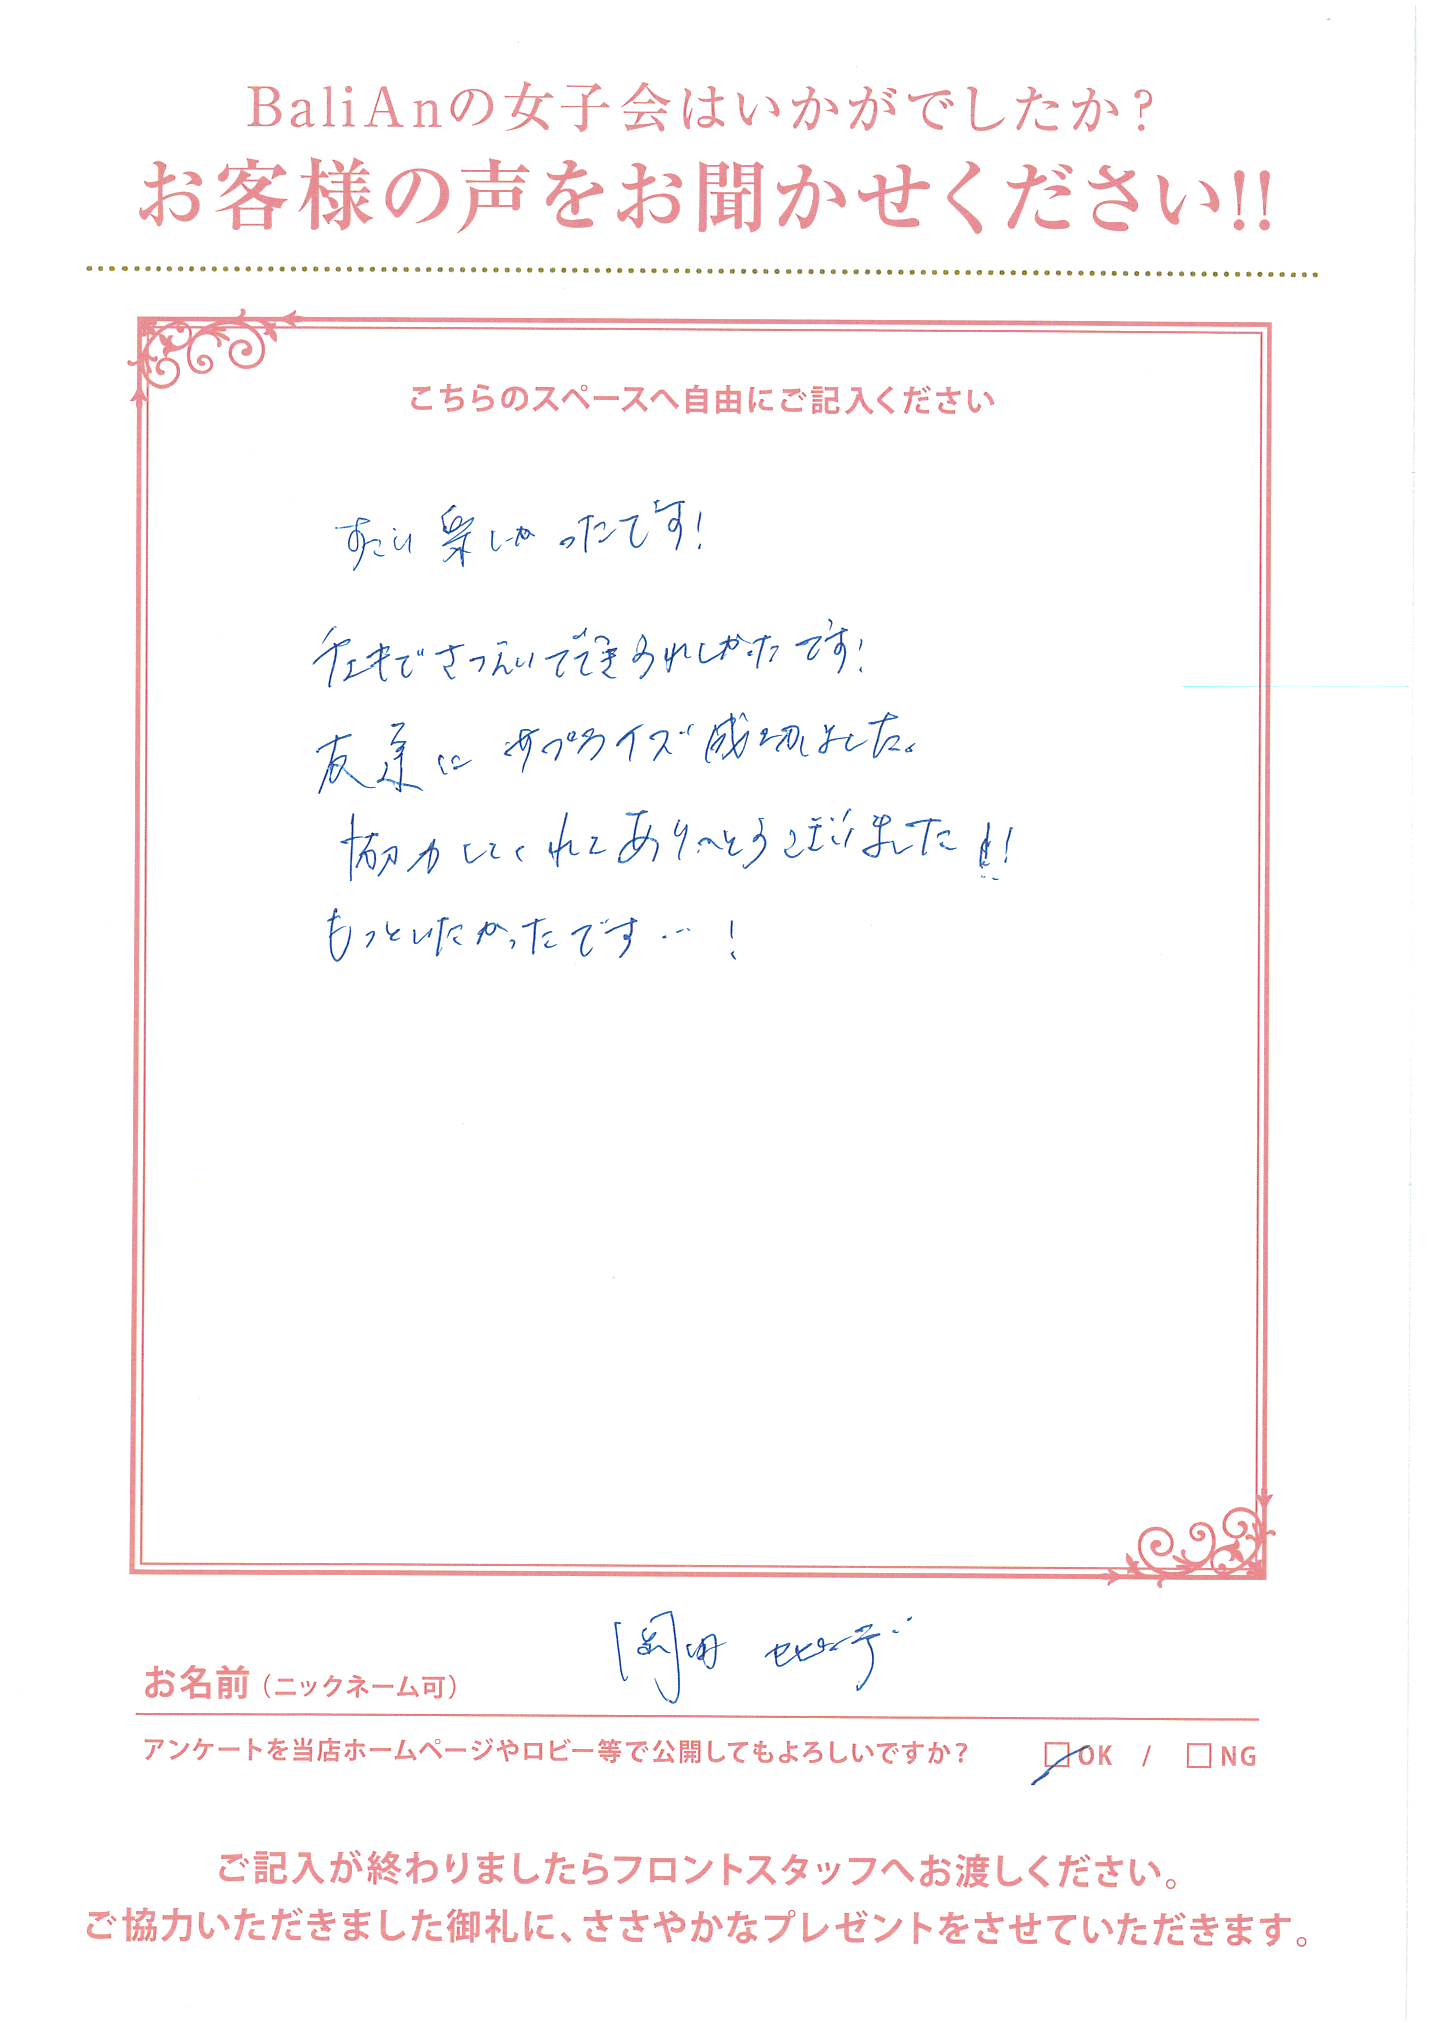 BaliAnの女子会はいかがでしたか?
お客様の声をお聞かせください!!
こちらのスペースへ自由にご記入ください
すごい楽しかったです!
チェキでさつえいでできうれしかったです!
友達にサプライズ成功しました。
協力してくれてありがとうございました!!
もっといたかったです…!
岡田
お名前(ニックネーム可)
アンケートを当店ホームページやロビー等で公開してもよろしいですか? □OK / □NG
ご記入が終わりましたらフロントスタッフへお渡しください。
ご協力いただきました御礼に、ささやかなプレゼントをさせていただきます。